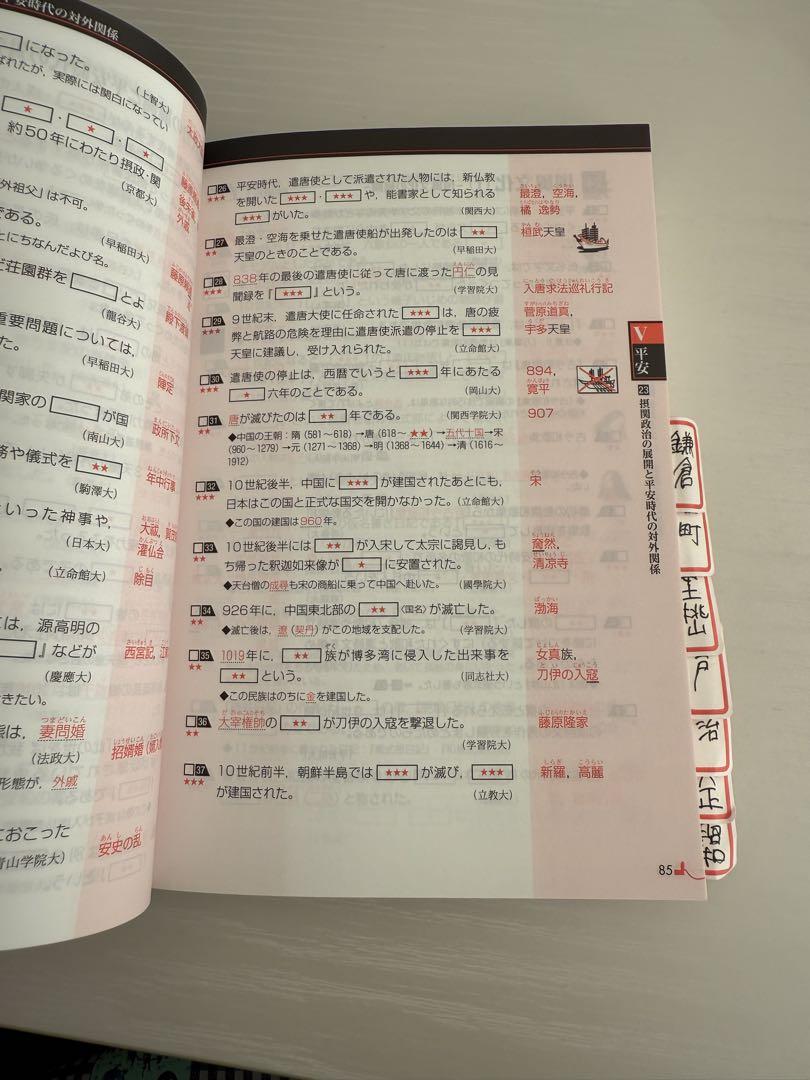 平安時代の対外関係
になった。
ばれたが，実際には関白になってい
（上智大）
★・★・★
約50年にわたり摂政・関
（京都大）
外祖父」は不可。
である。
（早稲田大）
とにちなんだよび名。
だ荘園群を とよ
（龍谷大）
重要問題については，
た。
（早稲田大）
陣定
関家の が国
（南山大）
政所下文
務や儀式を ★★
（駒澤大）
年中行事
といった神事や，
（日本大）
大祓，
灌仏会
（立命館大）
除目
には，源高明の
』などが
西宮記，
（慶應大）
きたい。
態は，妻問婚
つまどいこん
（法政大）
招婿婚
形態が，外戚
におこった
（青山学院大）
安史の乱
26 平安時代，遣唐使として派遣された人物には，新仏教
★★★ を開いた ★★★・★★★ や，能書家として知られる
★★★ がいた。 （関西大）
さいちょう くうかい
最澄，空海，
たちばなのはやなり
橘 逸勢
27 最澄・空海を乗せた遣唐使船が出発したのは ★★
★★ 天皇のときのことである。 （早稲田大）
桓武天皇
28 838年の最後の遣唐使に従って唐に渡った円仁の見
★★★ 聞録を『 ★★★ 』という。 （学習院大）
入唐求法巡礼行記
29 9世紀末，遣唐大使に任命された ★★★ は，唐の疲
★★★ 弊と航路の危険を理由に遣唐使派遣の停止を ★★★
天皇に建議し，受け入れられた。 （立命館大）
すがわらのみちざね
菅原道真，
宇多天皇
30 遣唐使の停止は，西暦でいうと ★★★ 年にあたる
★★★ ★ 六年のことである。 （岡山大）
894，
かんぴょう
寛平
31 唐が滅びたのは ★★ 年である。 （関西学院大）
★★ ◆中国の王朝：隋（581～618）→唐（618～ ★★ ）→五代十国→宋
（960～1279）→元（1271～1368）→明（1368～1644）→清（1616～
1912）
907
32 10世紀後半，中国に ★★ が建国されたあとにも，
★★ 日本はこの国と正式な国交を開かなかった。（立命館大）
◆この国の建国は960年。
そう
宋
33 10世紀後半には ★★ が入宋して太宗に謁見し，も
★★ ち帰った釈迦如来像が ★ に安置された。
◆天台僧の成尋も宋の商船に乗って中国へ赴いた。 （國學院大）
ちょうねん
奝然，
せいりょうじ
清凉寺
34 926年に，中国東北部の ★★ 〈国名〉が滅亡した。
★★ ◆滅亡後は，遼（契丹）がこの地域を支配した。 （学習院大）
ぼっかい
渤海
35 1019年に， ★★ 族が博多湾に侵入した出来事を
★★ ★★ という。 （同志社大）
◆この民族はのちに金を建国した。
じょしん
女真族，
とい にゅうこう
刀伊の入寇
36 大宰権帥の ★★ が刀伊の入寇を撃退した。
★★ （学習院大）
ふじわらのたかいえ
藤原隆家
37 10世紀前半，朝鮮半島では ★★★ が滅び， ★★★
★★★ が建国された。 （立教大）
しらぎ こうらい
新羅，高麗
V
平安
23 摂関政治の展開と平安時代の対外関係
鎌倉
町
桃山
戸
治
正
昭
85